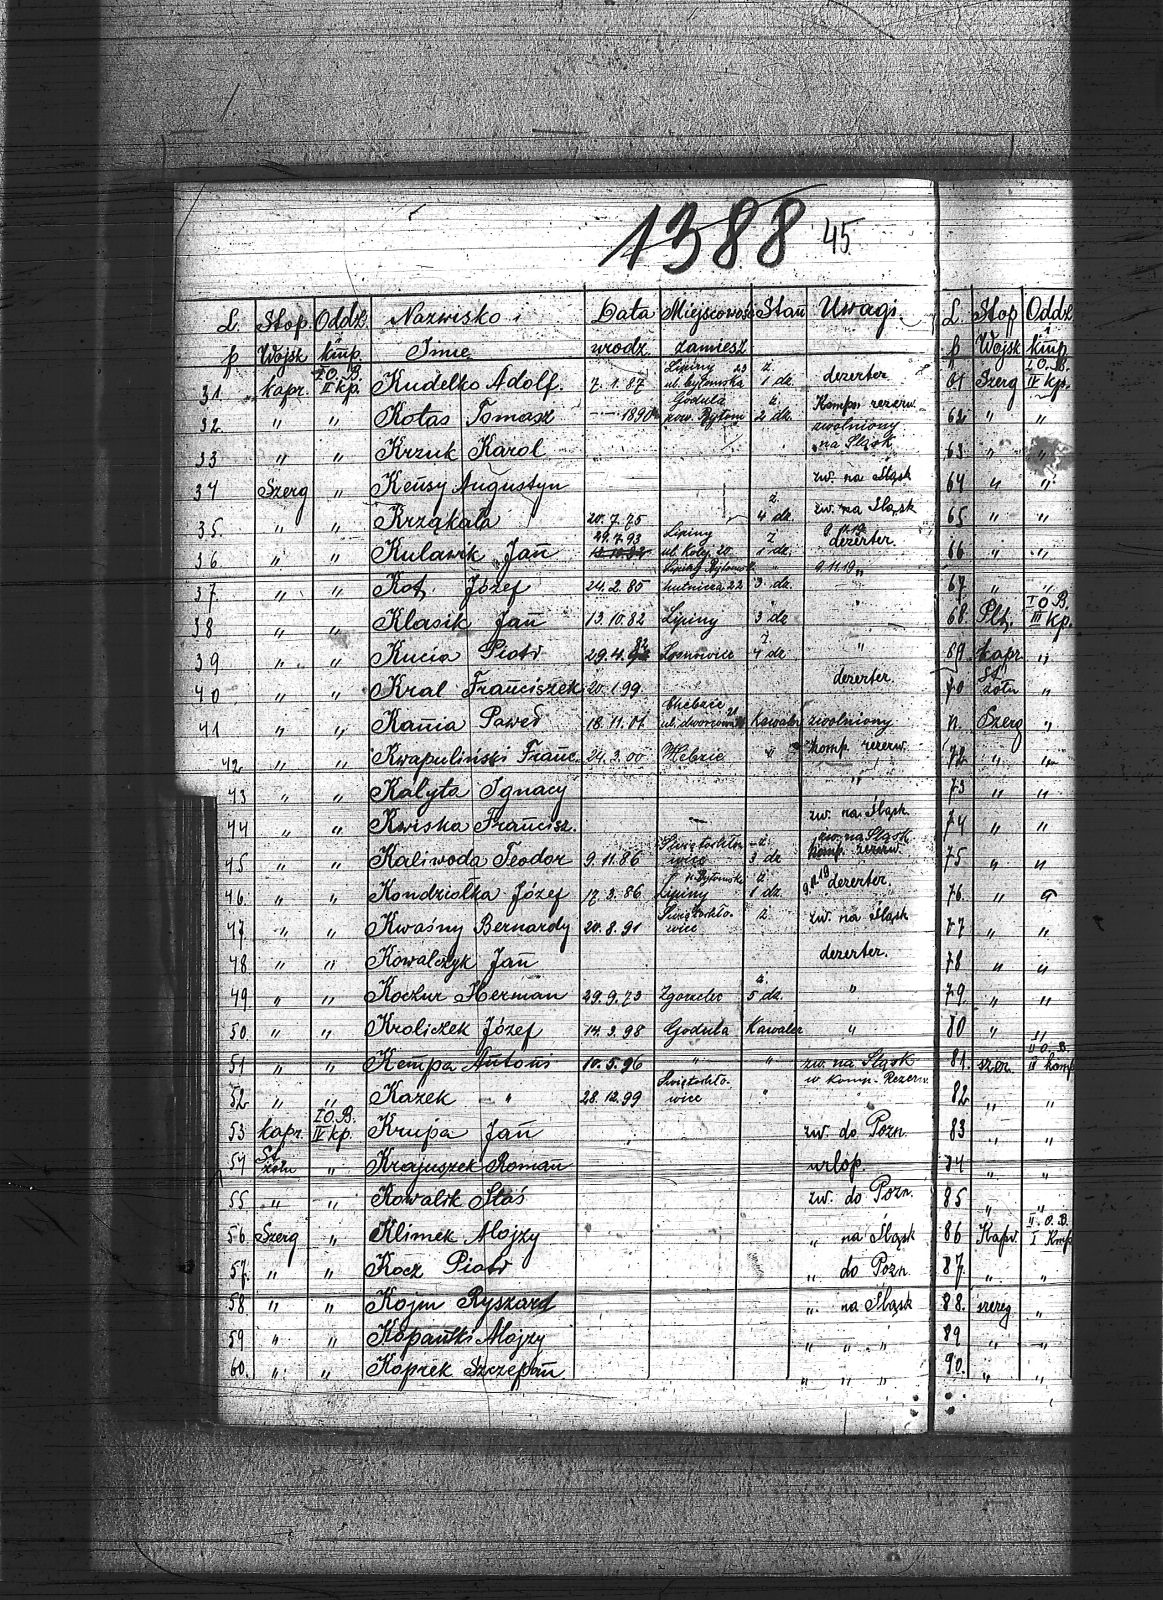 1388 45
L. Stop. Oddz. Nazwisko i Data Miejscowość Stan Uwagi.
p Wojsk kmp. Imię urodz. zamiesz.
31 kapr. I O. B. II kp. Kudelko Adolf. 7.1.87 Lipiny 23 ul. bytomska ż. 1 dz. dezerter.
32 " " Kotas Tomasz 1890 Godula pow. Bytom ż. 2 dz. Komp. rezerw.
33 " " Krzuk Karol zwolniony na Śląsk
34 Szerg " Keusy Augustyn zw. na Śląsk
35 " " Krząkala 20.7.75 ż. 4 dz. zw. na Śląsk
36 " " Kulawik Jan 29.7.93 Lipiny ul. Kolej. 20 ż 1 dz. dezerter.
37 " " Kot Józef 24.2.85 Lipiny hutnicza 22 " 3 dz. 9.11.19 "
38 " " Klasik Jan 13.10.82 Lipiny 3 dz "
39 " " Kucia Piotr 29.4. Łosnowice ż 4 dz "
40 " " Kral Franciszek 20.1.99. dezerter.
41 " " Kania Paweł 18.11.01 Chebzie ul. dworcowa 21 Kawaler zwolniony
42 " " Kwapuliński Franc. 24.3.00 Chebzie " komp. rezerw.
43 " " Kalyta Ignacy "
44 " " Kwiska Francisz. zw. na Śląsk.
45 " " Kaliwoda Teodor 9.11.86 Świętochłowice ż. 3 dz zw. na Śląsk komp. rezerw.
46 " " Kondziołka Józef 17.3.86 Lipiny ul. Bytomska ż 1 dz. 9.11.19 dezerter.
47 " " Kwaśny Bernardy 20.8.91 Świętochłowice ż zw. na Śląsk
48 " " Kowalczyk Jan dezerter.
49 " " Koczur Herman 29.9.73 Zgorzelec ż. 5 dz. "
50 " " Kroliczek Józef 14.3.98 Godula Kawaler "
51 " " Kempa Antoni 10.5.96 " " zw. na Śląsk
52 " " Kazek " 28.12.99 Świętochłowice " w komp. Rezerw.
53 kapr. I O. B. IV kp. Krupa Jan zw. do Pozn.
54 St. żołn " Krajuszek Roman urlop
55 " " Kowalik Staś zw. do Pozn.
56 Szerg " Klimek Alojzy " na Śląsk
57. " " Kocz Piotr " do Pozn.
58 " " Kojm Ryszard " na Śląsk
59 " " Kopański Alojzy " " "
60. " " Koprek Szczepan " " "
L. Stop Oddz
p Wojsk kmp.
61 Szerg I O. B. IV kp.
62 " "
63. " "
64 " "
65 " "
66 " "
67. " "
68. Plt. I O B. III kp.
69. kapr "
70 St. żołn "
71. Szerg "
72. " "
73 " "
74 " "
75 " "
76 "
77 " "
78 " "
79. " "
80 "
81. szer. II O. B. II komp
82 " "
83 " "
84 " "
85 "
86 Kapr. II. O. B. I Kmp
87. " "
88. szereg "
89 " "
90. " "